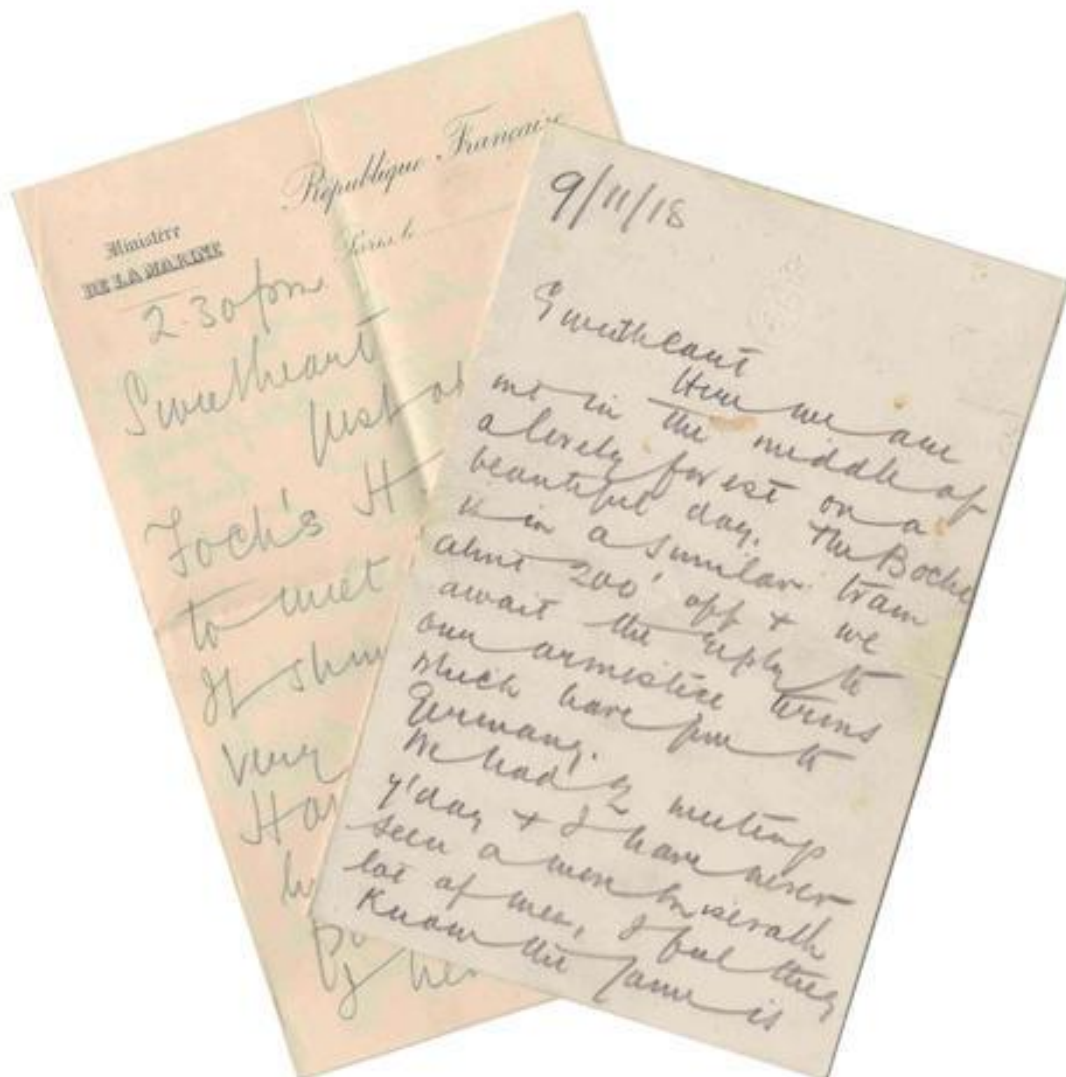 République Française
Ministère
DE LA MARINE
Paris, le
2.30 pm
Sweetheart
Just
Foch's H
to meet
If
very
Ha
9/11/18
Sweetheart
Here we are
in the middle of
a lovely forest on a
beautiful day. The Boche
is in a similar train
about 200' off & we
await the reply to
our armistice terms
which have gone to
Germany.
We had 2 meetings
y'day & I have never
seen a more miserable
lot of men, I feel they
know the game is